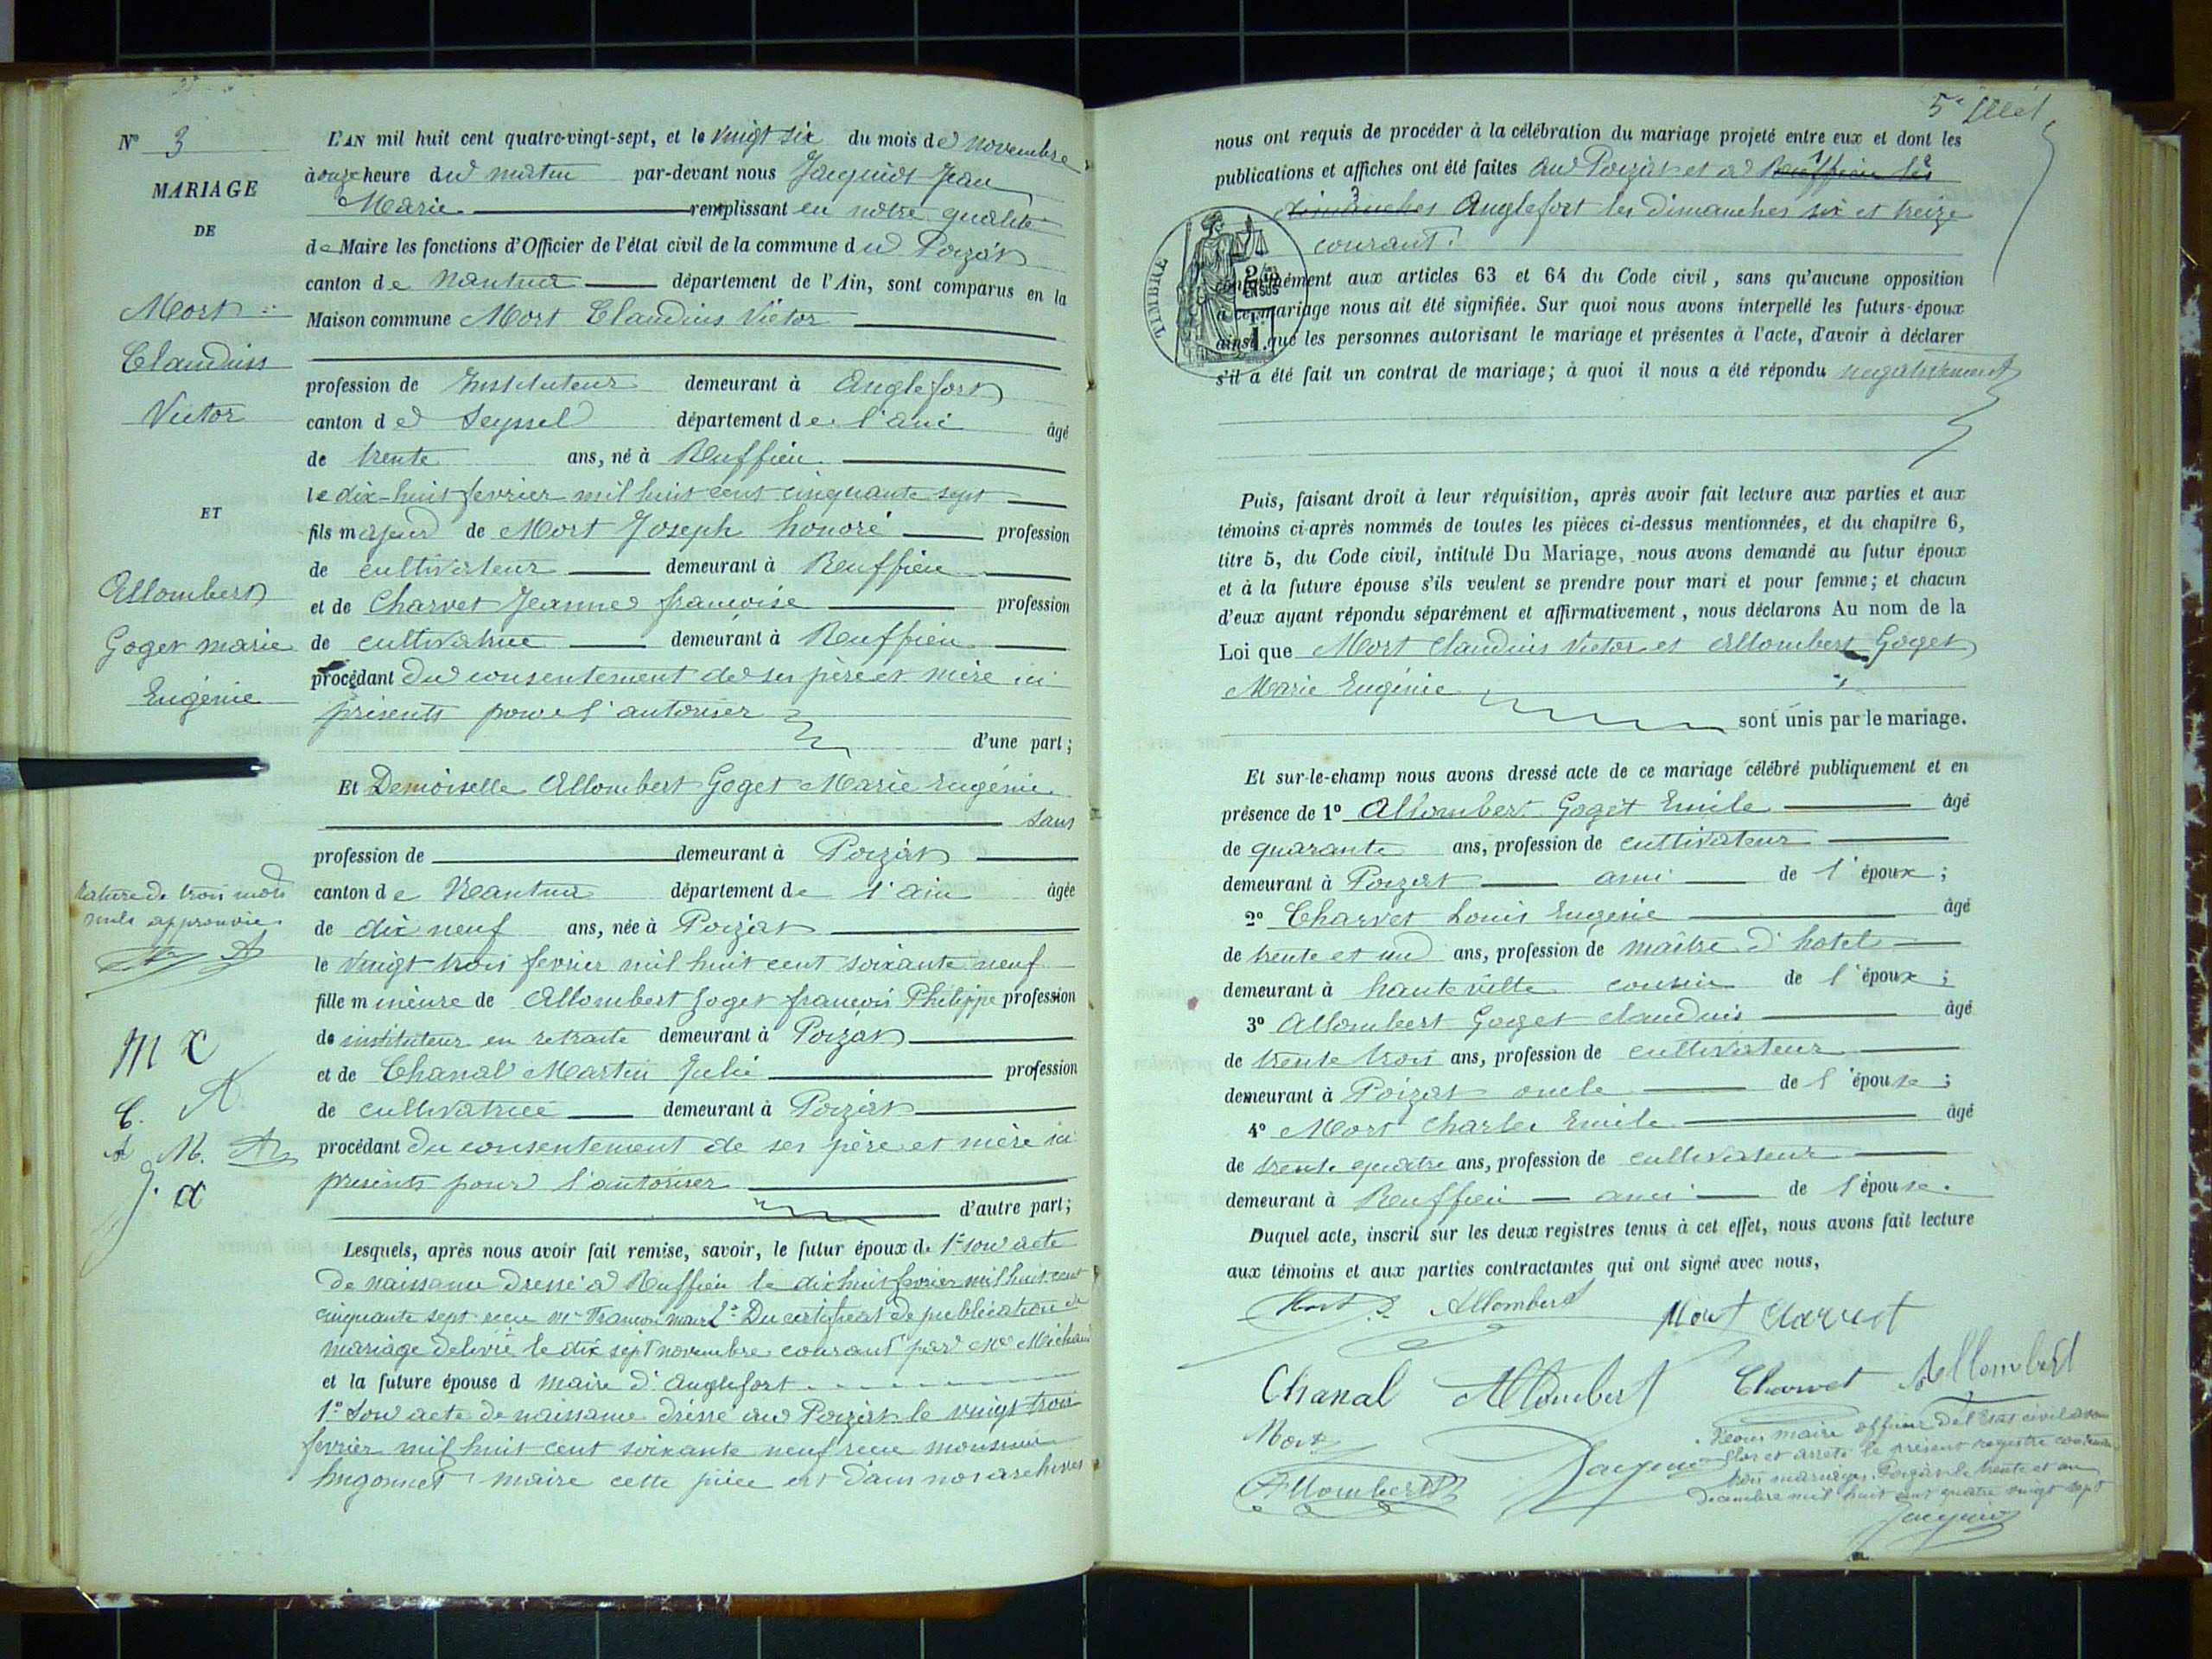 N° 3
MARIAGE
DE
Mort
Claudius
Victor
ET
Allombert
Goget marie
Eugénie
rature de trois mots
nuls approuvée
M C
C. A
A M. A
J. a
L'AN mil huit cent quatre-vingt-sept, et le vingt six du mois de novembre
à onze heure du matin par-devant nous Jacquiot Jean
Marie remplissant en notre qualité
de Maire les fonctions d'Officier de l'état civil de la commune du Poizat
canton de Nantua département de l'Ain, sont comparus en la
Maison commune Mort Claudius Victor
profession de Instituteur demeurant à Anglefort
canton de Seyssel département de l'ain âgé
de trente ans, né à Ruffieu
le dix-huit fevrier mil huit cent cinquante sept
fils majeur de Mort Joseph honoré profession
de cultivateur demeurant à Ruffieu
et de Charvet Jeanne françoise profession
de cultivatrice demeurant à Ruffieu
procédant du consentement de ses père et mère ici
présents pour l'autoriser
d'une part;
Et Demoiselle Allombert Goget Marie Eugénie
sans
profession de demeurant à Poizat
canton de Nantua département de l'ain âgée
de dix neuf ans, née à Poizat
le vingt trois fevrier mil huit cent soixante neuf
fille mineure de Allombert Goget françois Philippe profession
de instituteur en retraite demeurant à Poizat
et de Chanal Martin Julie profession
de cultivatrice demeurant à Poizat
procédant du consentement de ses père et mère ici
présents pour l'autoriser
d'autre part;
Lesquels, après nous avoir fait remise, savoir, le futur époux de 1° son acte
de naissance dressé à Ruffieu le dix huit fevrier mil huit cent
cinquante sept reçu Mr maire 2° Du certificat de publication de
mariage delivré le dix sept novembre courant par Mr Michaud
et la future épouse d maire d'Anglefort
1° Son acte de naissance dressé au Poizat le vingt trois
fevrier mil huit cent soixante neuf reçu monsieur
hugonnet maire cette pièce est dans nos archives
5e
nous ont requis de procéder à la célébration du mariage projeté entre eux et dont les
publications et affiches ont été faites au Poizat et à Ruffieu les
dimanches Anglefort les dimanches six et treize
courant.
TIMBRE
conformément aux articles 63 et 64 du Code civil, sans qu'aucune opposition
à ce mariage nous ait été signifiée. Sur quoi nous avons interpellé les futurs-époux
ainsi que les personnes autorisant le mariage et présentes à l'acte, d'avoir à déclarer
s'il a été fait un contrat de mariage; à quoi il nous a été répondu négativement
Puis, faisant droit à leur réquisition, après avoir fait lecture aux parties et aux
témoins ci-après nommés de toutes les pièces ci-dessus mentionnées, et du chapitre 6,
titre 5, du Code civil, intitulé Du Mariage, nous avons demandé au futur époux
et à la future épouse s'ils veulent se prendre pour mari et pour femme; et chacun
d'eux ayant répondu séparément et affirmativement, nous déclarons Au nom de la
Loi que Mort Claudius Victor et Allombert Goget
Marie Eugénie
sont unis par le mariage.
Et sur-le-champ nous avons dressé acte de ce mariage célébré publiquement et en
présence de 1° Allombert Goget Emile âgé
de quarante ans, profession de cultivateur
demeurant à Poizat ami de l'époux;
2° Charvet Louis Eugénie âgé
de trente et un ans, profession de maître d'hotel
demeurant à hauteville cousin de l'époux;
3° Allombert Goget Claudius âgé
de trente trois ans, profession de cultivateur
demeurant à Poizat oncle de l'épouse;
4° Mort Charles Emile âgé
de trente quatre ans, profession de cultivateur
demeurant à Ruffieu ami de l'épouse.
Duquel acte, inscrit sur les deux registres tenus à cet effet, nous avons fait lecture
aux témoins et aux parties contractantes qui ont signé avec nous,
Mort Allombert Mort Charvet
Chanal Allombert Charvet Allombert
Mort
Allombert Jacquiot
Nous maire officier de l'Etat civil avons
clos et arrêté le présent registre contenant
trois mariages. Poizat le trente et un
decembre mil huit cent quatre vingt sept
Jacquiot